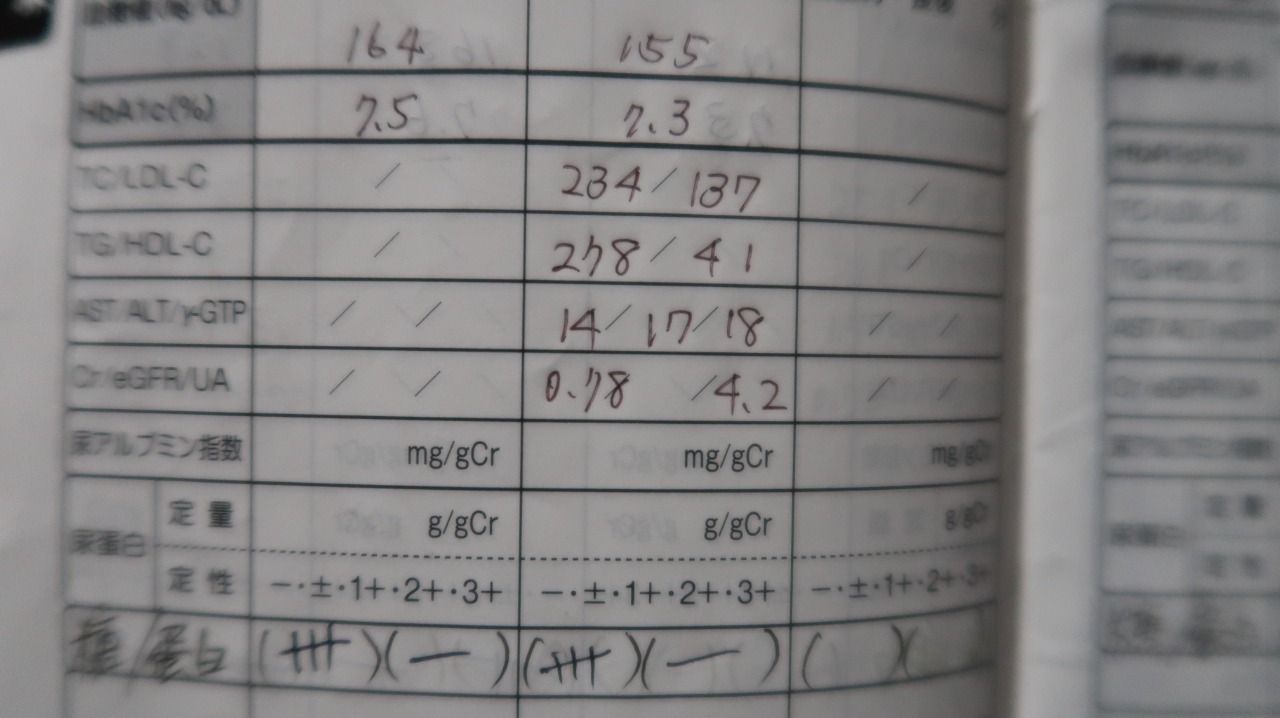 164 155
HbA1c(%) 7.5 7.3
TC/LDL-C / 234/137 /
TG/HDL-C / 278/41 /
AST/ALT/γ-GTP / / 14/17/18 / /
Cr/eGFR/UA / / 0.78 /4.2 / /
尿アルブミン指数 mg/gCr mg/gCr mg/gCr
尿蛋白 定量 g/gCr g/gCr g/gCr
定性 −・±・1+・2+・3+ −・±・1+・2+・3+ −・±・1+・2+・3+
糖/蛋白 (+++)(−) (+++)(−) ( )(